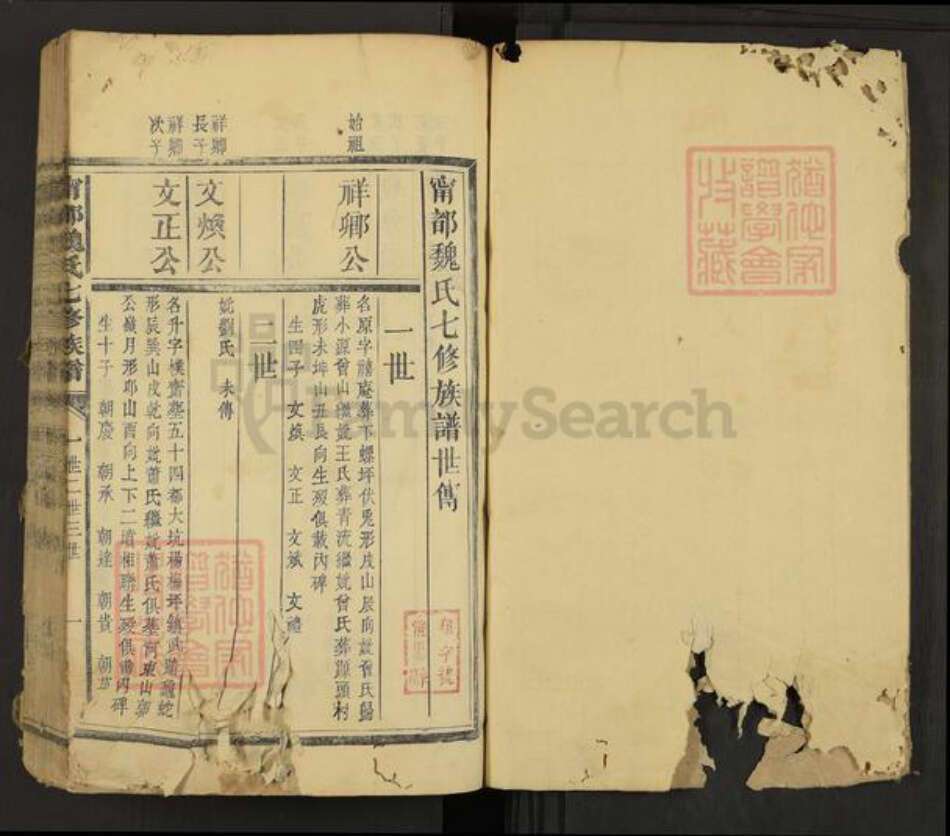 甯都魏氏七修族譜世傳
始祖
祥卿公
一世
名原字禧庵葬下螺坪伏兎形戌山辰向妣曾氏歸
葬小源曾山繼妣王氏葬青流繼妣曾氏葬源頭村
虎形未坤山丑艮向生歿俱載內碑
生四子 文煥 文正 文斌 文禮
祥卿長子
文煥公
二世
妣劉氏 未傳
祥卿次子
文正公
名升字樸齋葬五十四都大坑楊梅坪鎮武蛇
形辰巽山戌乾向妣蕭氏繼妣蕭氏俱葬河東山
公嶺月形卯山酉向上下二墳相聯生歿俱載內碑
生十子 朝慶 朝承 朝達 朝貴
甯都魏氏七修族譜
一世二世三世
一
猶他家譜學會收藏
猶他家譜學會
FamilySearch